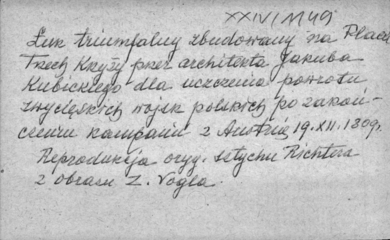 XXIV/M49
Łuk triumfalny zbudowany na Placu
Trzech Krzyży przez architekta Jakuba
Kubickiego dla uczczenia powrotu
zwycięskich wojsk polskich po zakoń-
czeniu kampanii z Austrią 19.XII.1809.
Reprodukcja oryg. sztychu Richtera
z obrazu Z. Vogla.